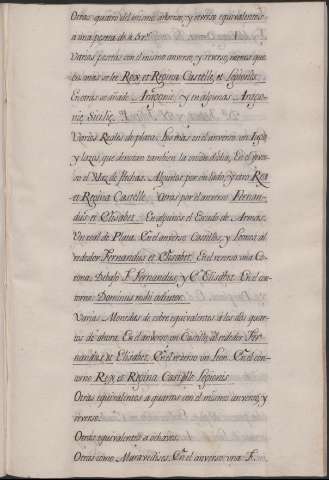 Otras quatro del mismo anverso, y reverso equivalentes
a una peseta de à 5 r.s
Varias pesetas con el mismo anverso, y reverso, menos que
en unas se lee Rex, et Regina Castelle, et Legionis.
En otras se añade Aragonie, y en algunas Arago-
nie, Sicilie.
Varios Reales de plata. En unos en el anverso, un Yugo,
y lazos, que denotan tambien la union dicha. En el rever-
so el Haz de flechas. Algunos por un lado, y otro Rex
et Regina Castelle. Otras por el anverso Fernan-
dus et Elisabet. En algunos el Escudo de Armas.
Un real de Plata. En el anverso Castillos, y Leones al
rededor Fernandus et Elisabet. En el reverso una Co-
rona. Debajo F. Fernandus, y E. Elisabet. En el con-
torno Dominus mihi adiutor.
Varias Monedas de cobre equivalentes à los dos quar-
tos de ahora. En el anverso, un Castillo, al rededor Fer-
nandus et Elisabet. En el reverso un Leon. En el con-
torno Rex, et Regina Castelle Legionis.
Otras equivalentes à quartos con el mismo anverso, y
reverso.
Otras equivalentes à ochavos.
Otras como Maravedises. En el anverso una F. con